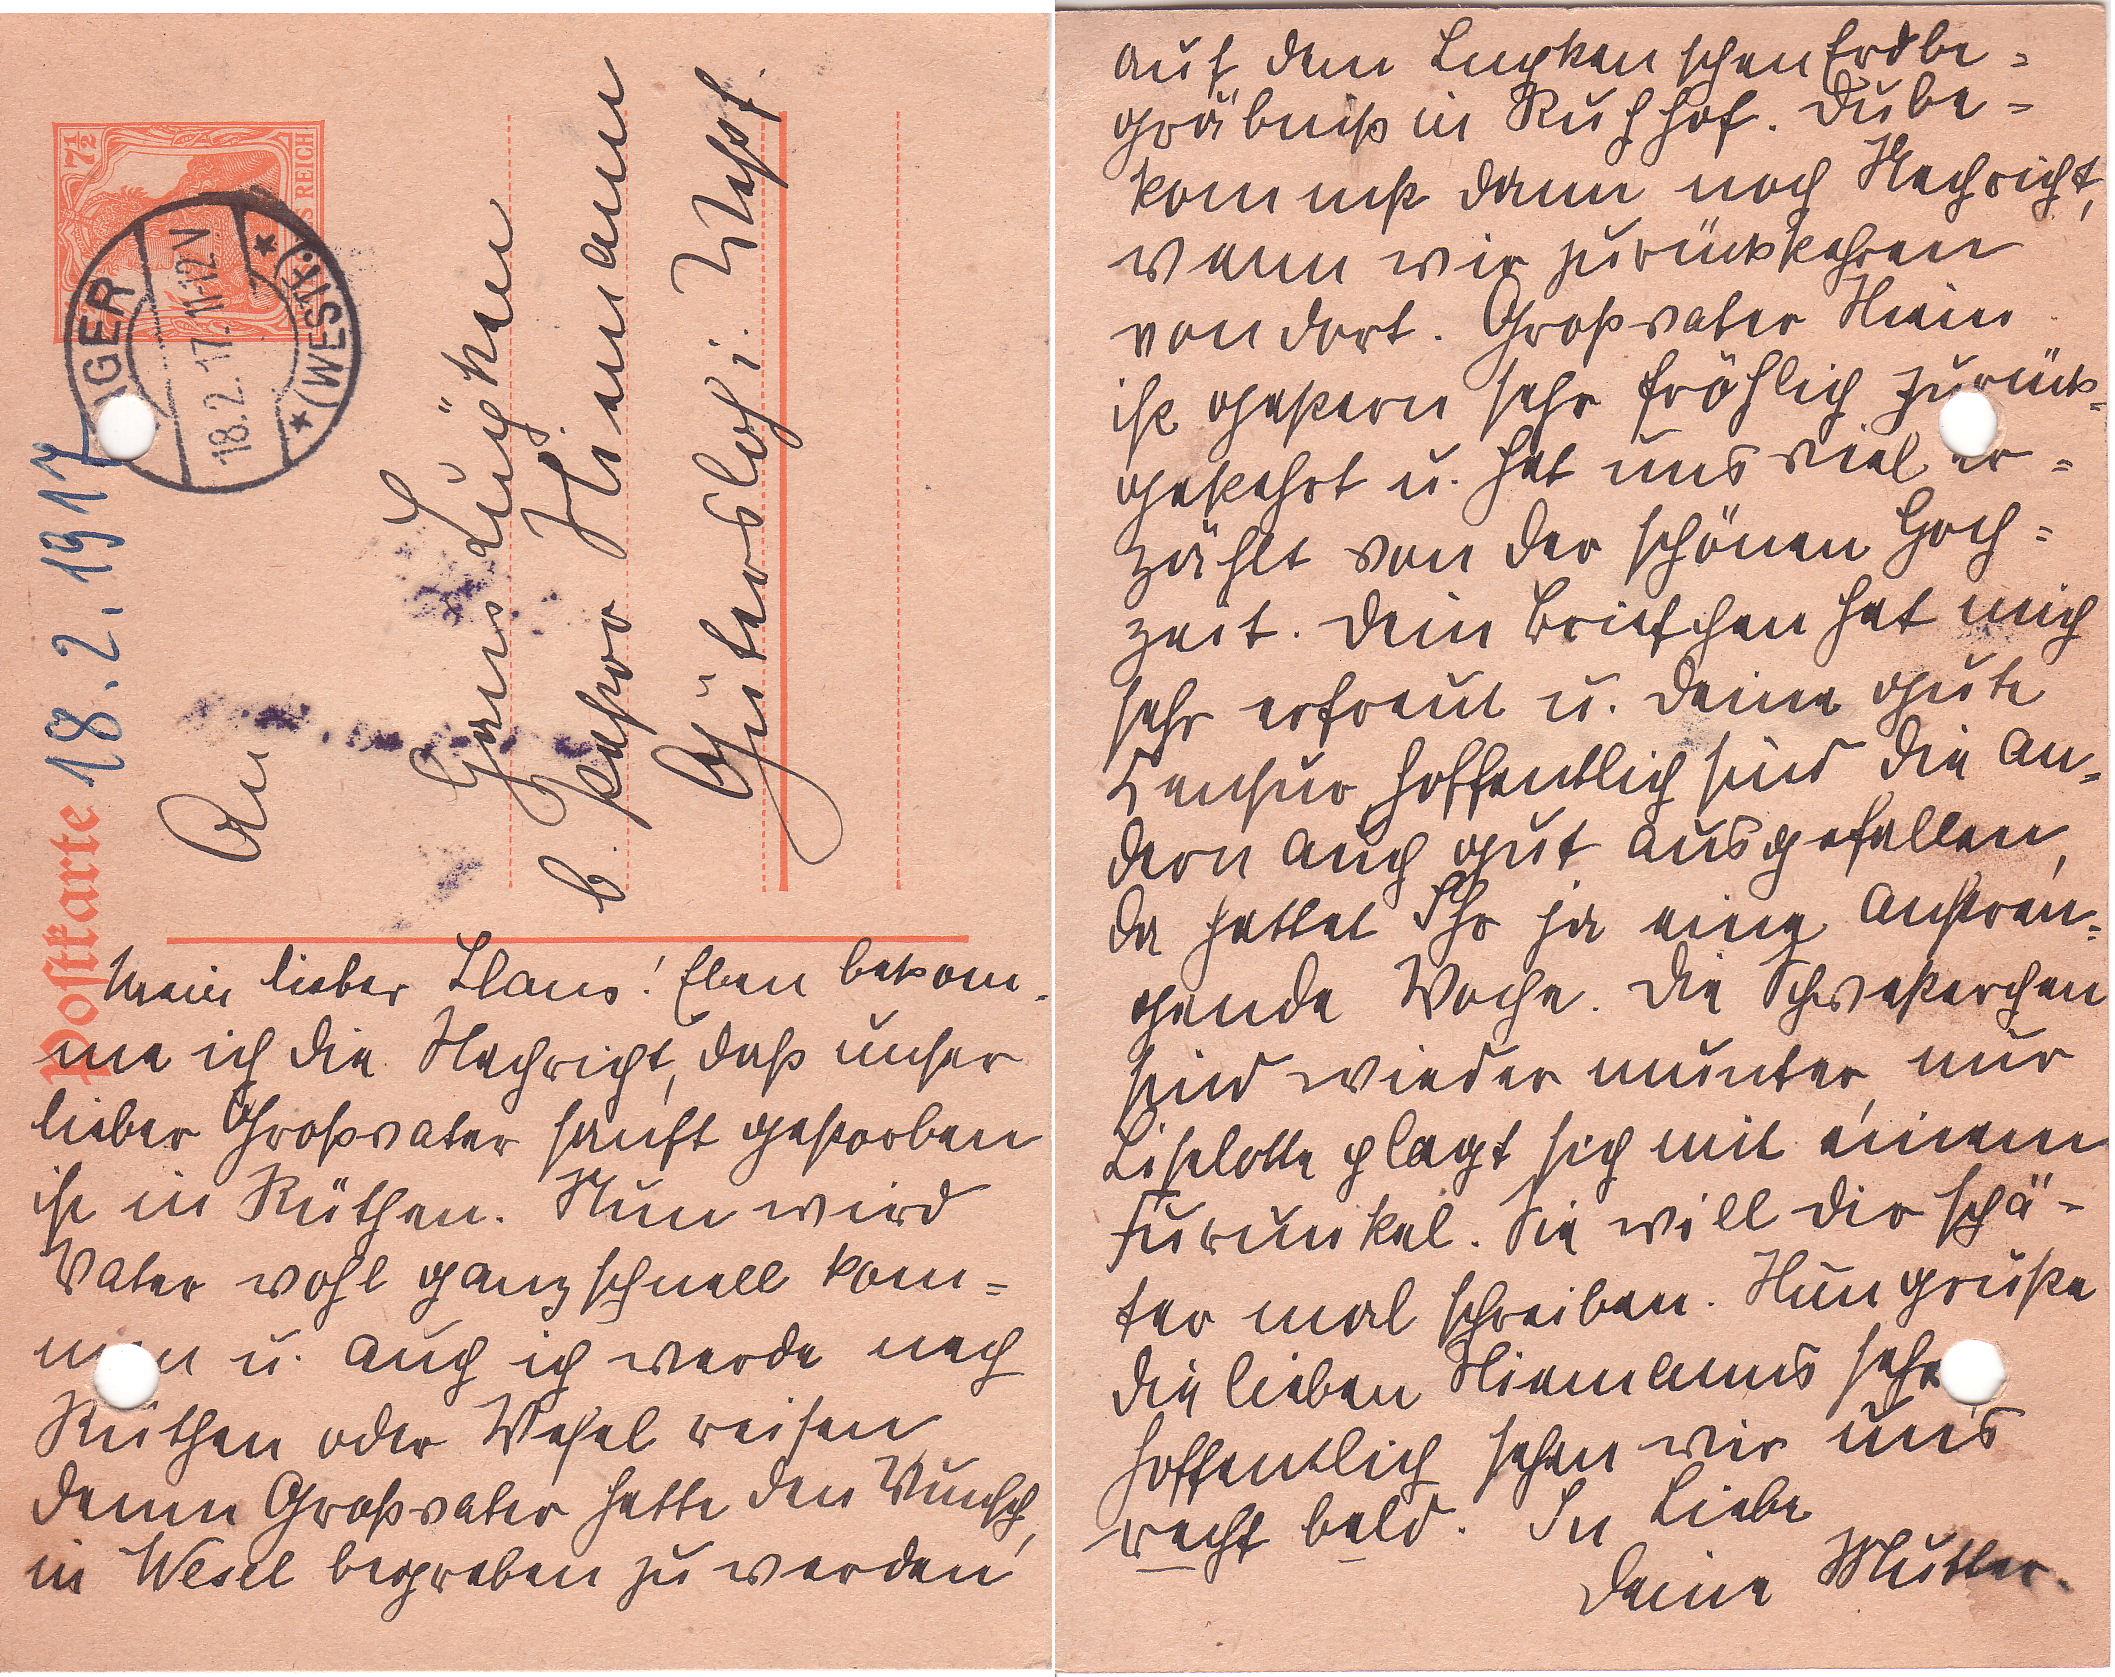 Postkarte
18.2.1917
7½
S REICH
IGER
18.2.17.11-12V
* (WESTF.) *
An
Hans Lüpken
b. Pastor Niemann
Gütersloh i. Westf.
Mein lieber Hans! Eben bekom-
me ich die Nachricht, daß unser
lieber Großvater sanft gestorben
ist in Rüthen. Nun wird
Vater wohl ganz schnell kom=
men u. auch ich werde nach
Rüthen oder Wesel reisen
denn Großvater hatte den Wunsch,
in Wesel begraben zu werden
auf dem Lupken schen Erdbe=
gräbniß in Kirchhof. Du be=
kommst dann noch Nachricht,
wenn wir zurückkehren
von dort. Großvater Niem
ist gestern sehr fröhlich zurück-
gekehrt u. hat uns viel er=
zählt von der schönen Hoch=
zeit. Dein Briefchen hat mich
sehr erfreut u. Deine gute
Censur, hoffentlich sind die an-
dern auch gut ausgefallen,
da hattet Ihr ja eine anstren=
gende Woche. Die Schwesterchen
sind wieder munter, nur
Liselotte plagt sich mit einem
Furunkel. Sie will dir spä-
ter mal schreiben. Nun grüße
die lieben Niemanns sehr
hoffentlich sehen wir uns
recht bald. In Liebe
Deine Mutter.